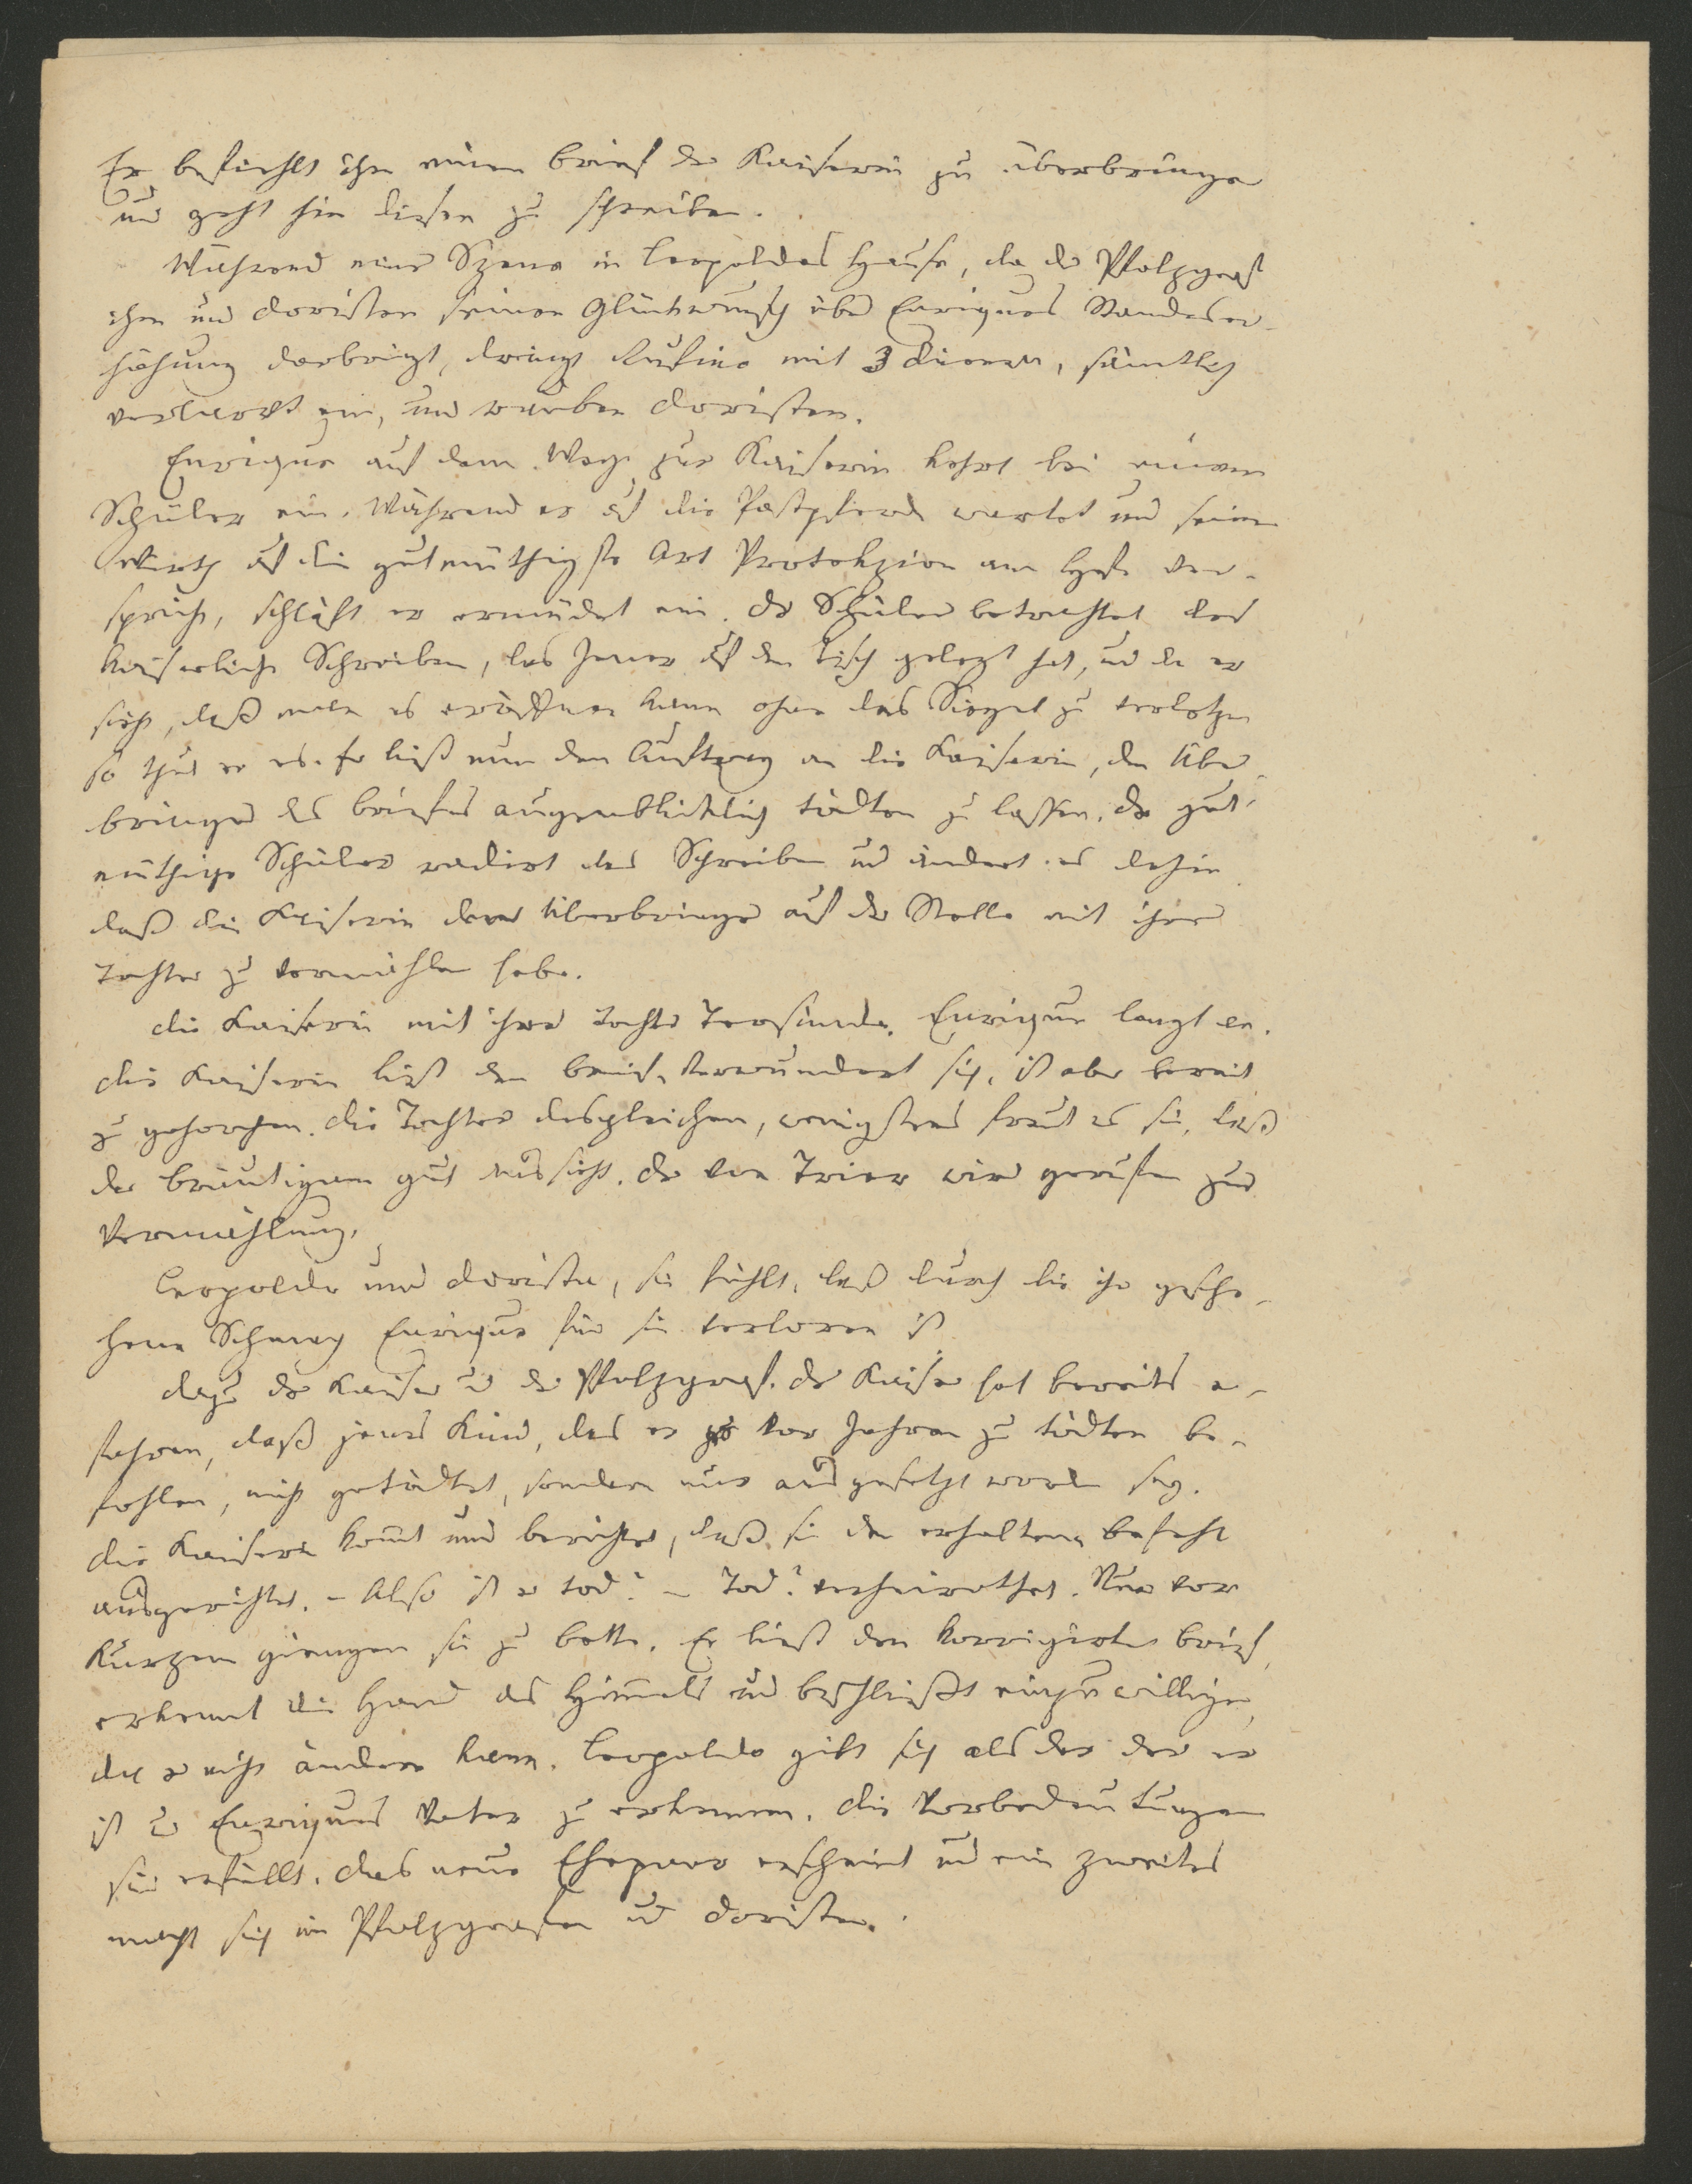 Er befiehlt ihm einen Brief der Kaiserin zu überbringen
und geht hin diesen zu schreiben.
Während einer Szene in Leopoldos Hause, da der Pfalzgraf
ihm und Doristen seinen Glückwunsch über Enriques Standeser-
höhung darbringt, dringt Rufino mit 3 Dienern, sämtlich
verlarvt ein, und rauben Doristen.
Enrique auf dem Wege zur Kaiserin kehrt bei einem
Schüler ein. Während er auf die Postpferde wartet und seinem
Wirth auf die gutmüthigste Art Protekzion am Hofe ver-
spricht, schläft er ermüdet ein. Der Schüler betrachtet das
kaiserliche Schreiben, das Jener auf den Tisch gelegt hat, und da er
sieht, daß man es eröffnen kann ohne das Siegel zu verletzen
so thut er es. Er liest nun den Auftrag an die Kaiserin, den Über-
bringer des Briefes augenblicklich tödten zu lassen. Der gut-
müthige Schüler radirt das Schreiben und ändert es dahin
daß die Kaiserin den Überbringer auf der Stelle mit ihrer
Tochter zu vermählen habe.
Die Kaiserin mit ihrer Tochter Enrique langt an.
Die Kaiserin liest den Brief, verwundert sich, ist aber bereit
zu gehorchen. Die Tochter desgleichen, wenigstens freut es sie, daß
der Bräutigam gut aussieht. Der von Trier wird gerufen zur
Vermählung.
Leopoldo und Dorista, sie fühlt, daß durch die ihr gesche-
hene Schmach Enrique für sie verloren ist.
Dazu der Kaiser und der Pfalzgraf. Der Kaiser hat bereits er-
fahren, daß jenes Kind, das er vor Jahren zu tödten be-
fohlen, nicht getödtet, sondern nur ausgesetzt worden sey.
Die Kaiserin kömmt und berichtet, daß sie den erhaltenen Befehl
ausgerichtet. – Also ist er tod? – Tod? verheirathet. Nur vor
Kurzem giengen sie zu Bette. Er liest den korrigirten Brief,
erkennt die Hand des Himmels und beschließt einzuwilligen,
da er nicht ändern kann. Leopoldo gibt sich als der der er
ist und Enriques Vater zu erkennen. Die Vorbedeutungen
sind erfüllt. Das neue Ehepaar erscheint und ein zweites
macht sich im Pfalzgrafen und Doristen.